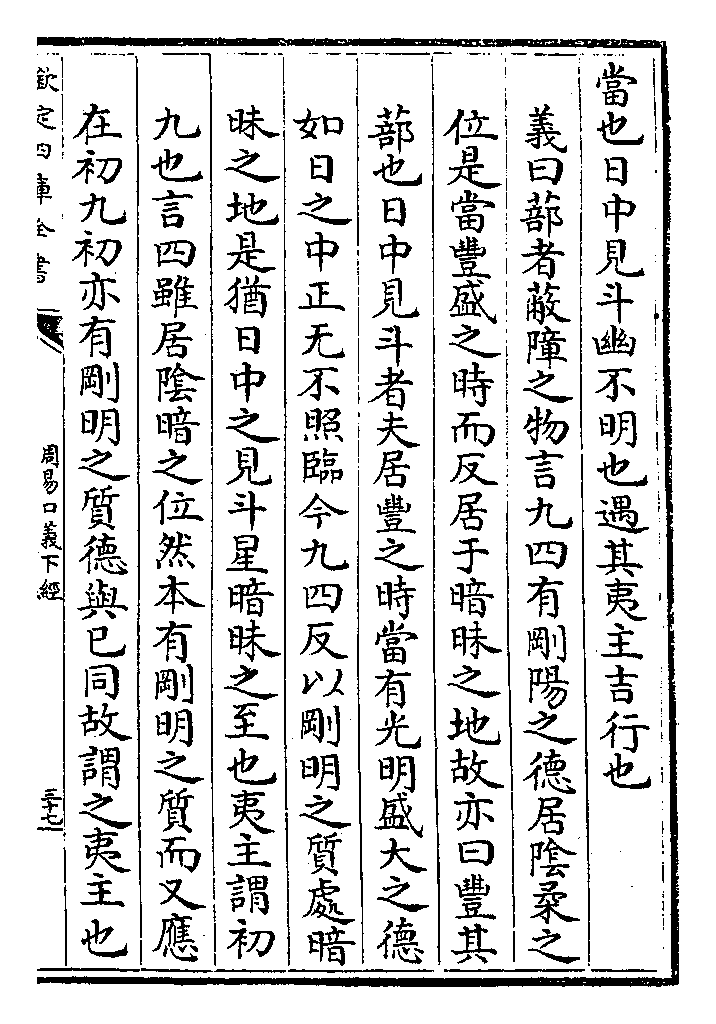 當也日中見斗幽不明也遇其夷主吉行也
義曰蔀者蔽障之物言九四有剛陽之德居陰柔之
位是當豐盛之時而反居于暗昧之地故亦曰豐其
蔀也日中見斗者夫居豐之時當有光明盛大之德
如日之中正无不照臨今九四反以剛明之質處暗
昧之地是猶日中之見斗星暗昧之至也夷主謂初
九也言四雖居陰暗之位然本有剛明之質而又應
在初九初亦有剛明之質德與已同故謂之夷主也
欽定四庫全書
周易口義下經
三十七